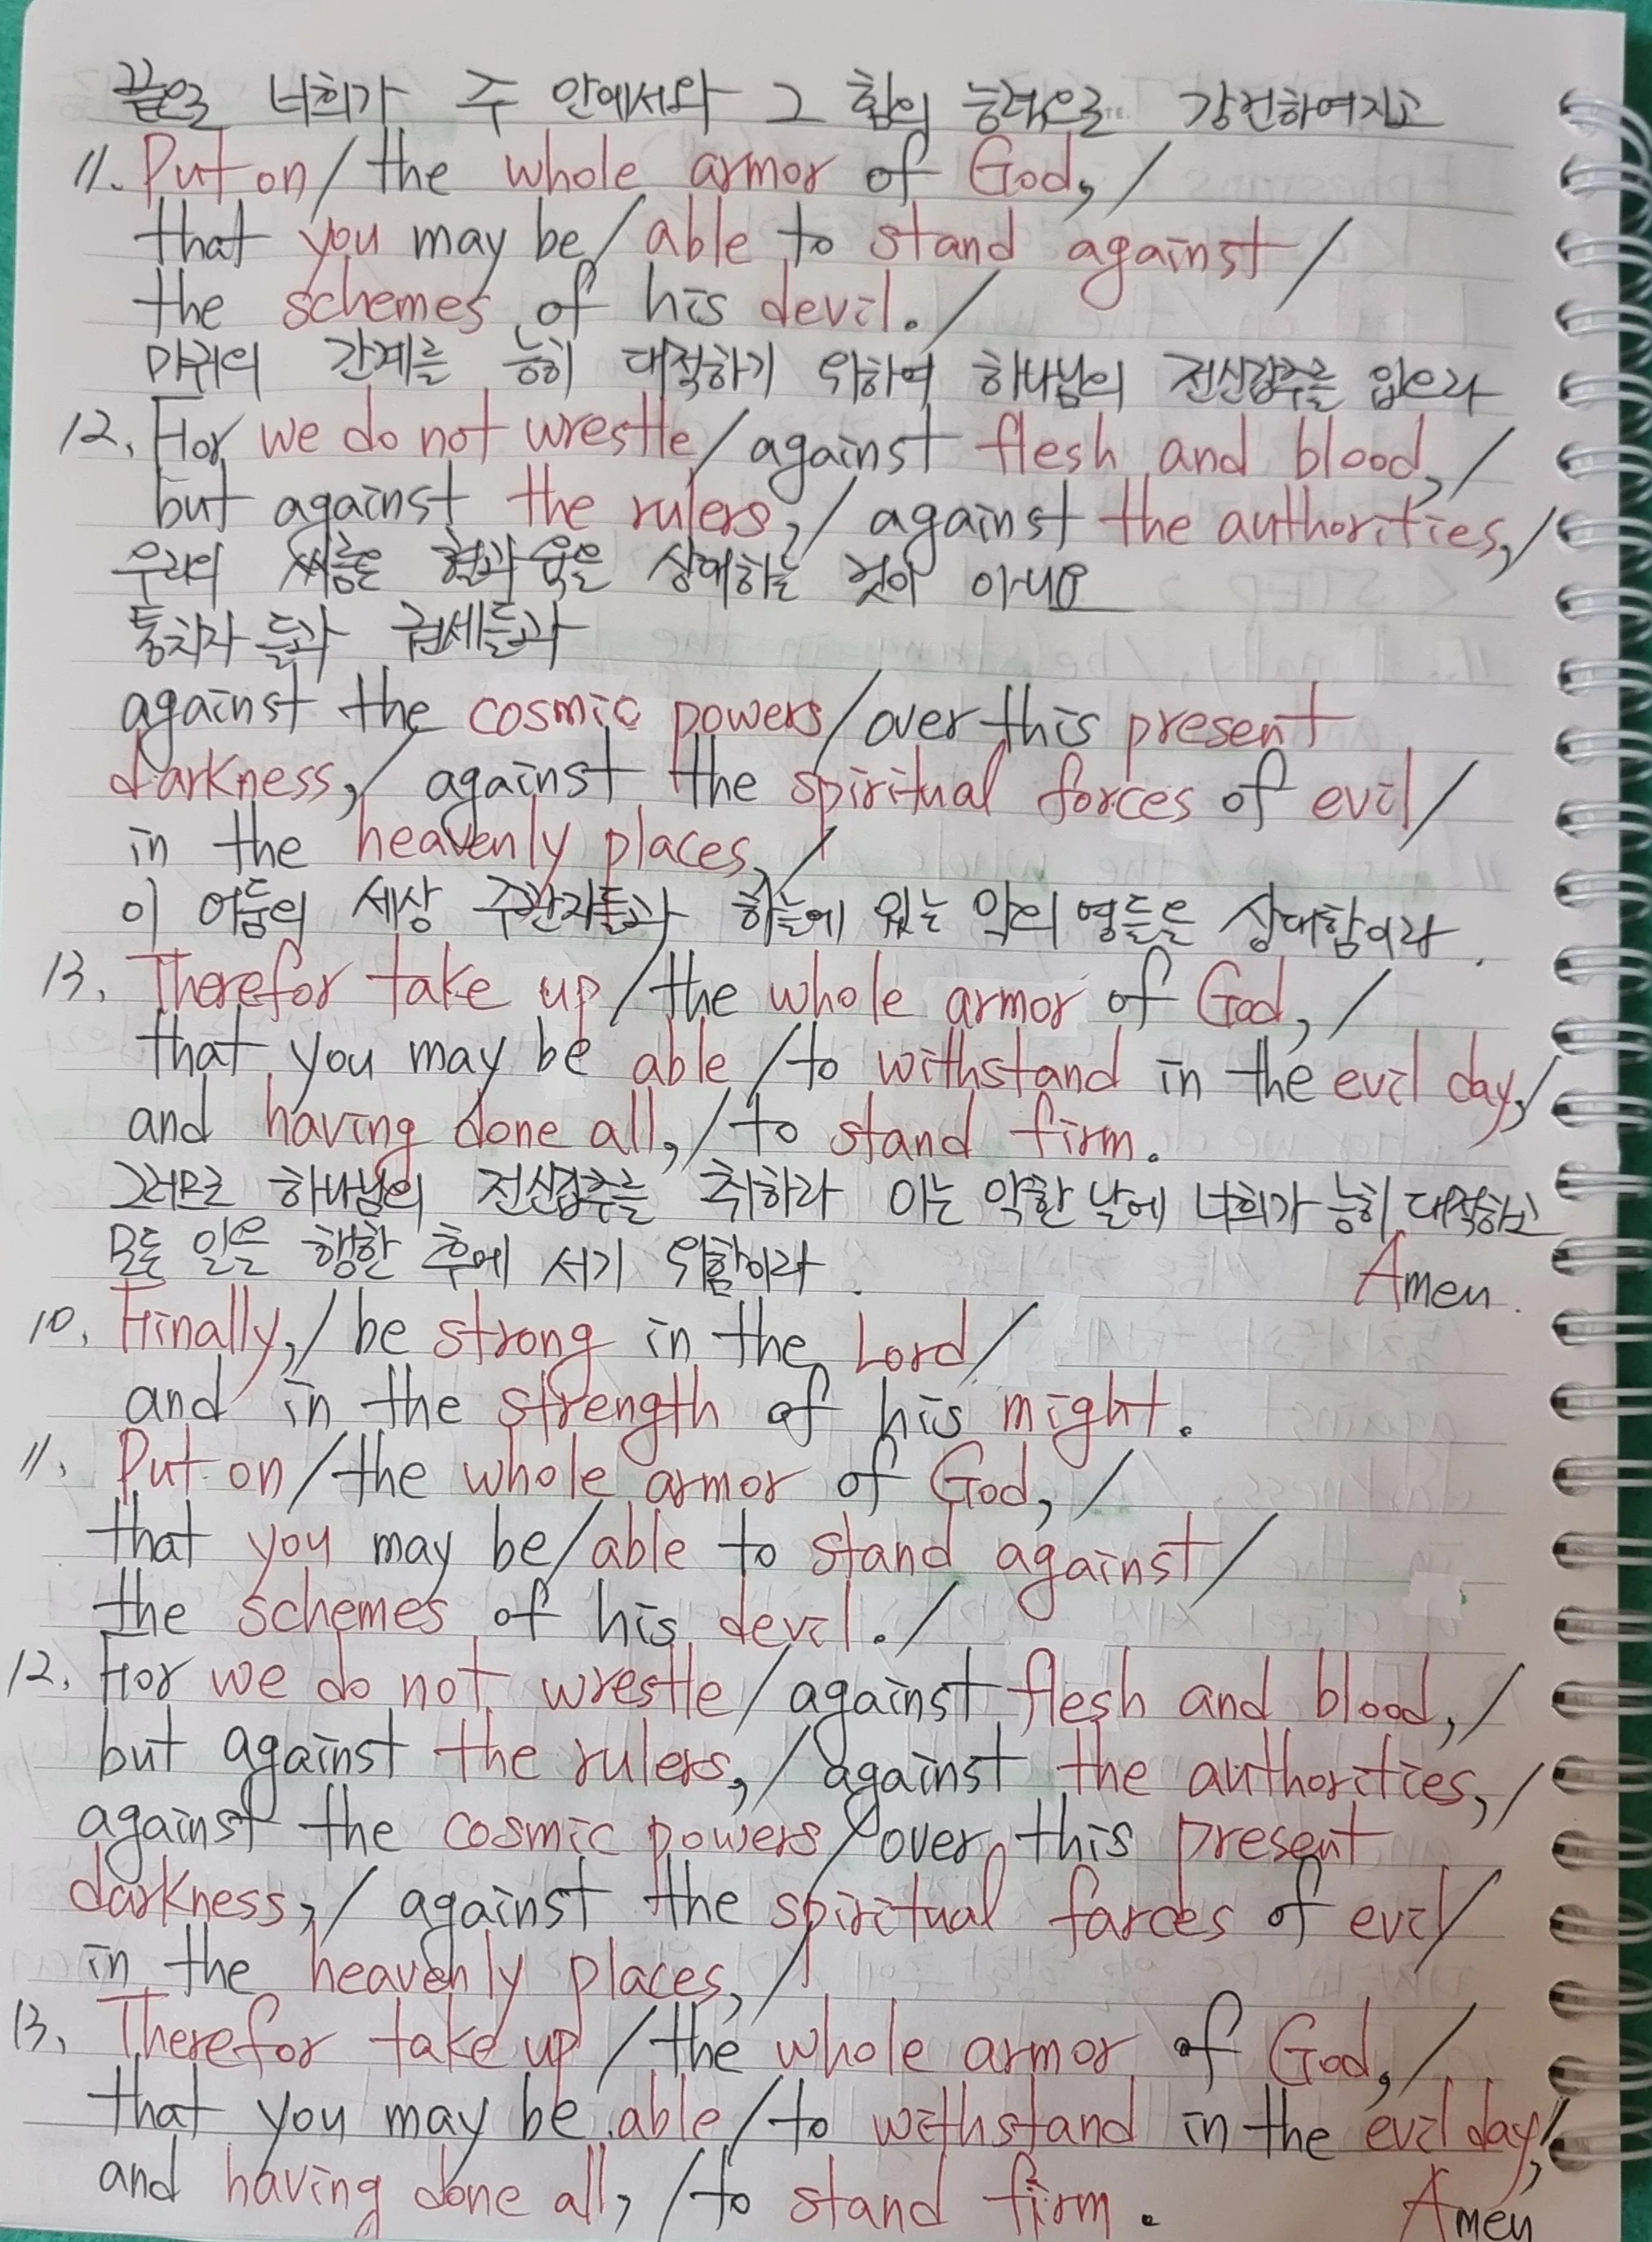 끝으로 너희가 주 안에서와 그 힘의 능력으로 강건하여지고
11. Put on / the whole armor of God, /
that you may be / able to stand against /
the schemes of his devil. /
마귀의 간계를 능히 대적하기 위하여 하나님의 전신갑주를 입으라
12. For we do not wrestle / against flesh and blood, /
but against the rulers, / against the authorities, /
우리의 씨름은 혈과 육을 상대하는 것이 아니요
통치자들과 권세들과
against the cosmic powers / over this present
darkness, / against the spiritual forces of evil /
in the heavenly places, /
이 어둠의 세상 주관자들과 하늘에 있는 악의 영들을 상대함이라.
13. Therefor take up / the whole armor of God, /
that you may be able / to withstand in the evil day, /
and having done all, / to stand firm.
그러므로 하나님의 전신갑주를 취하라 이는 악한 날에 너희가 능히 대적하고
모든 일을 행한 후에 서기 위함이라. Amen.
10. Finally, / be strong in the Lord /
and in the strength of his might.
11. Put on / the whole armor of God, /
that you may be / able to stand against /
the schemes of his devil. /
12. For we do not wrestle / against flesh and blood, /
but against the rulers, / against the authorities, /
against the cosmic powers / over this present
darkness, / against the spiritual farces of evil /
in the heavenly places, /
13. Therefor take up / the whole armor of God, /
that you may be able / to withstand in the evil day, /
and having done all, / to stand firm. Amen